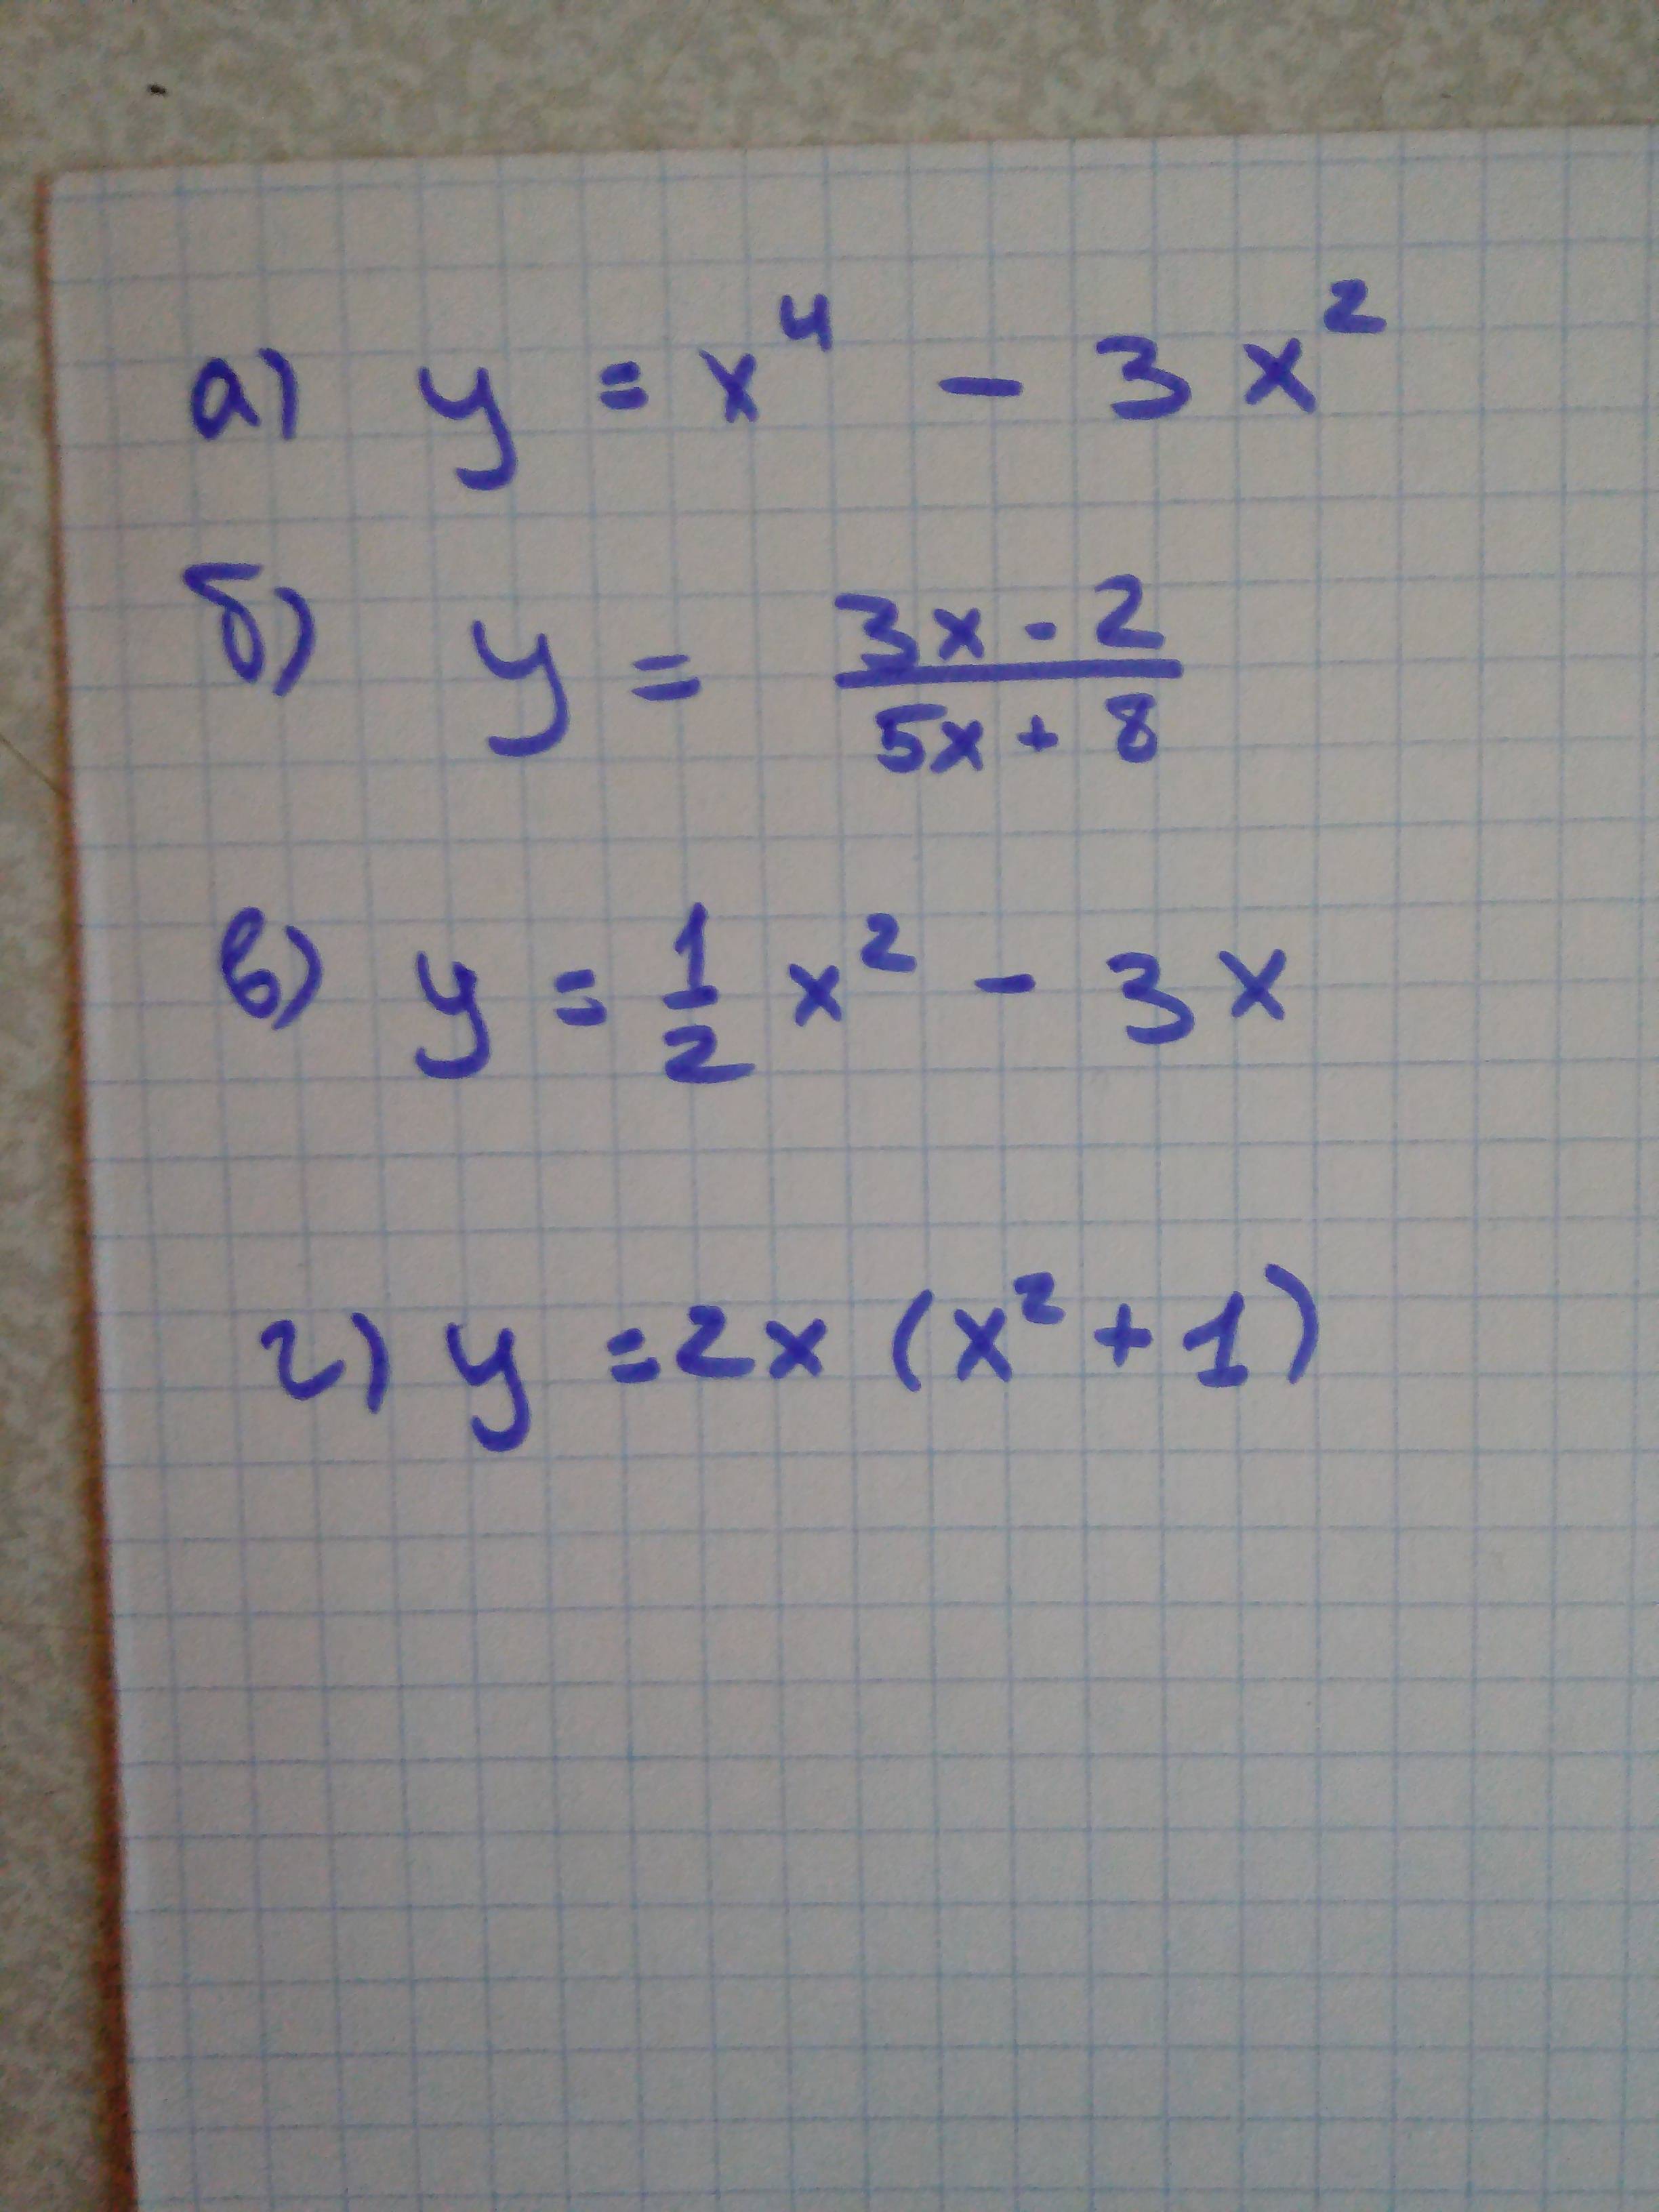 а) y = x⁴ - 3x²
б) y = (3x - 2)/(5x + 8)
в) y = 1/2 x² - 3x
г) y = 2x (x² + 1)